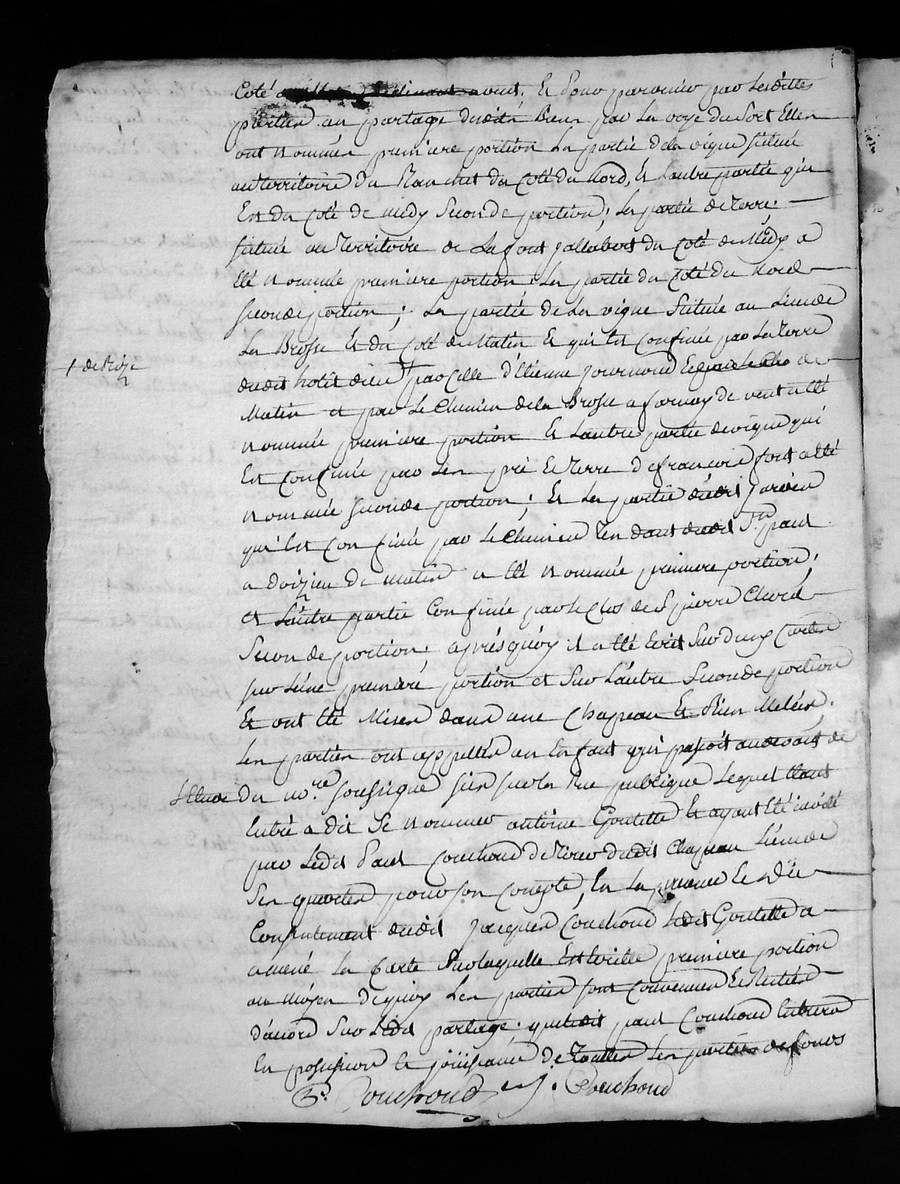 Coté et Pour parvenir par Lesdittes
parties au partage desdits Biens par La voye du Sort Elles
ont nommées premiere portion La partie de la vigne Scituée
au territoire du Planchet du Coté du Nord, et L'autre partie qui
Est du Coté de midy Seconde portion; La partie de Terre
Scituée au Territoire de La font Jallabert du Coté du Midy a
Eté nommée premiere portion La partie du Coté du Nord
seconde portion; La partie de La vigne Scituée au Lieu de
La Brosse et du Coté de Matin et qui Est Confinée par La Terre
1 de Bize
dudit hotel dieu par Celle d'Etienne Journoud de
Matin et par Le Chemin de la Brosse a farnay de vent a Eté
nommée premiere portion et L'autre partie de vigne qui
Est Confinée par Les pré et Terre de françois fort a Eté
nommée seconde portion; Et La partie dudit Jardin
qui Est Confinée par Le Chemin Tendant dudit St paul
a doizieu de matin a Eté nommée premiere portion,
et L'autre partie Confinée par Le Clos de Sr pierre
Seconde portion. aprés quoy il a Eté Ecrit Sur deux Cartes
sur L'une premiere portion et Sur L'autre Seconde portion
Et ont Eté Mises dans un Chapeau Et Bien Melées.
Les parties ont appellées un Enfant qui passoit au devant de
L'Etude du nore soussigné sise sur La rue publique Lequel Etant
Entré a dit Se nommer antoine Goutelle Et ayant Eté invité
par Ledit Paul Couchoud de Tirer dudit Chapeau L'une de
Ses quartes pour son Compte, En La presence Et De
Consentement dudit Jacques Couchoud Ledit Goutelle a
amené La Carte Sur laquelle Est Ecritte premiere portion
au moyen dequoy Les parties sont Convenues Et Restées
d'acord Sur Ledit partage. que Ledit paul Couchoud Entrera
En possession et joüissance de Toutes Les parties de fonds
P. Couchoud J. Couchoud